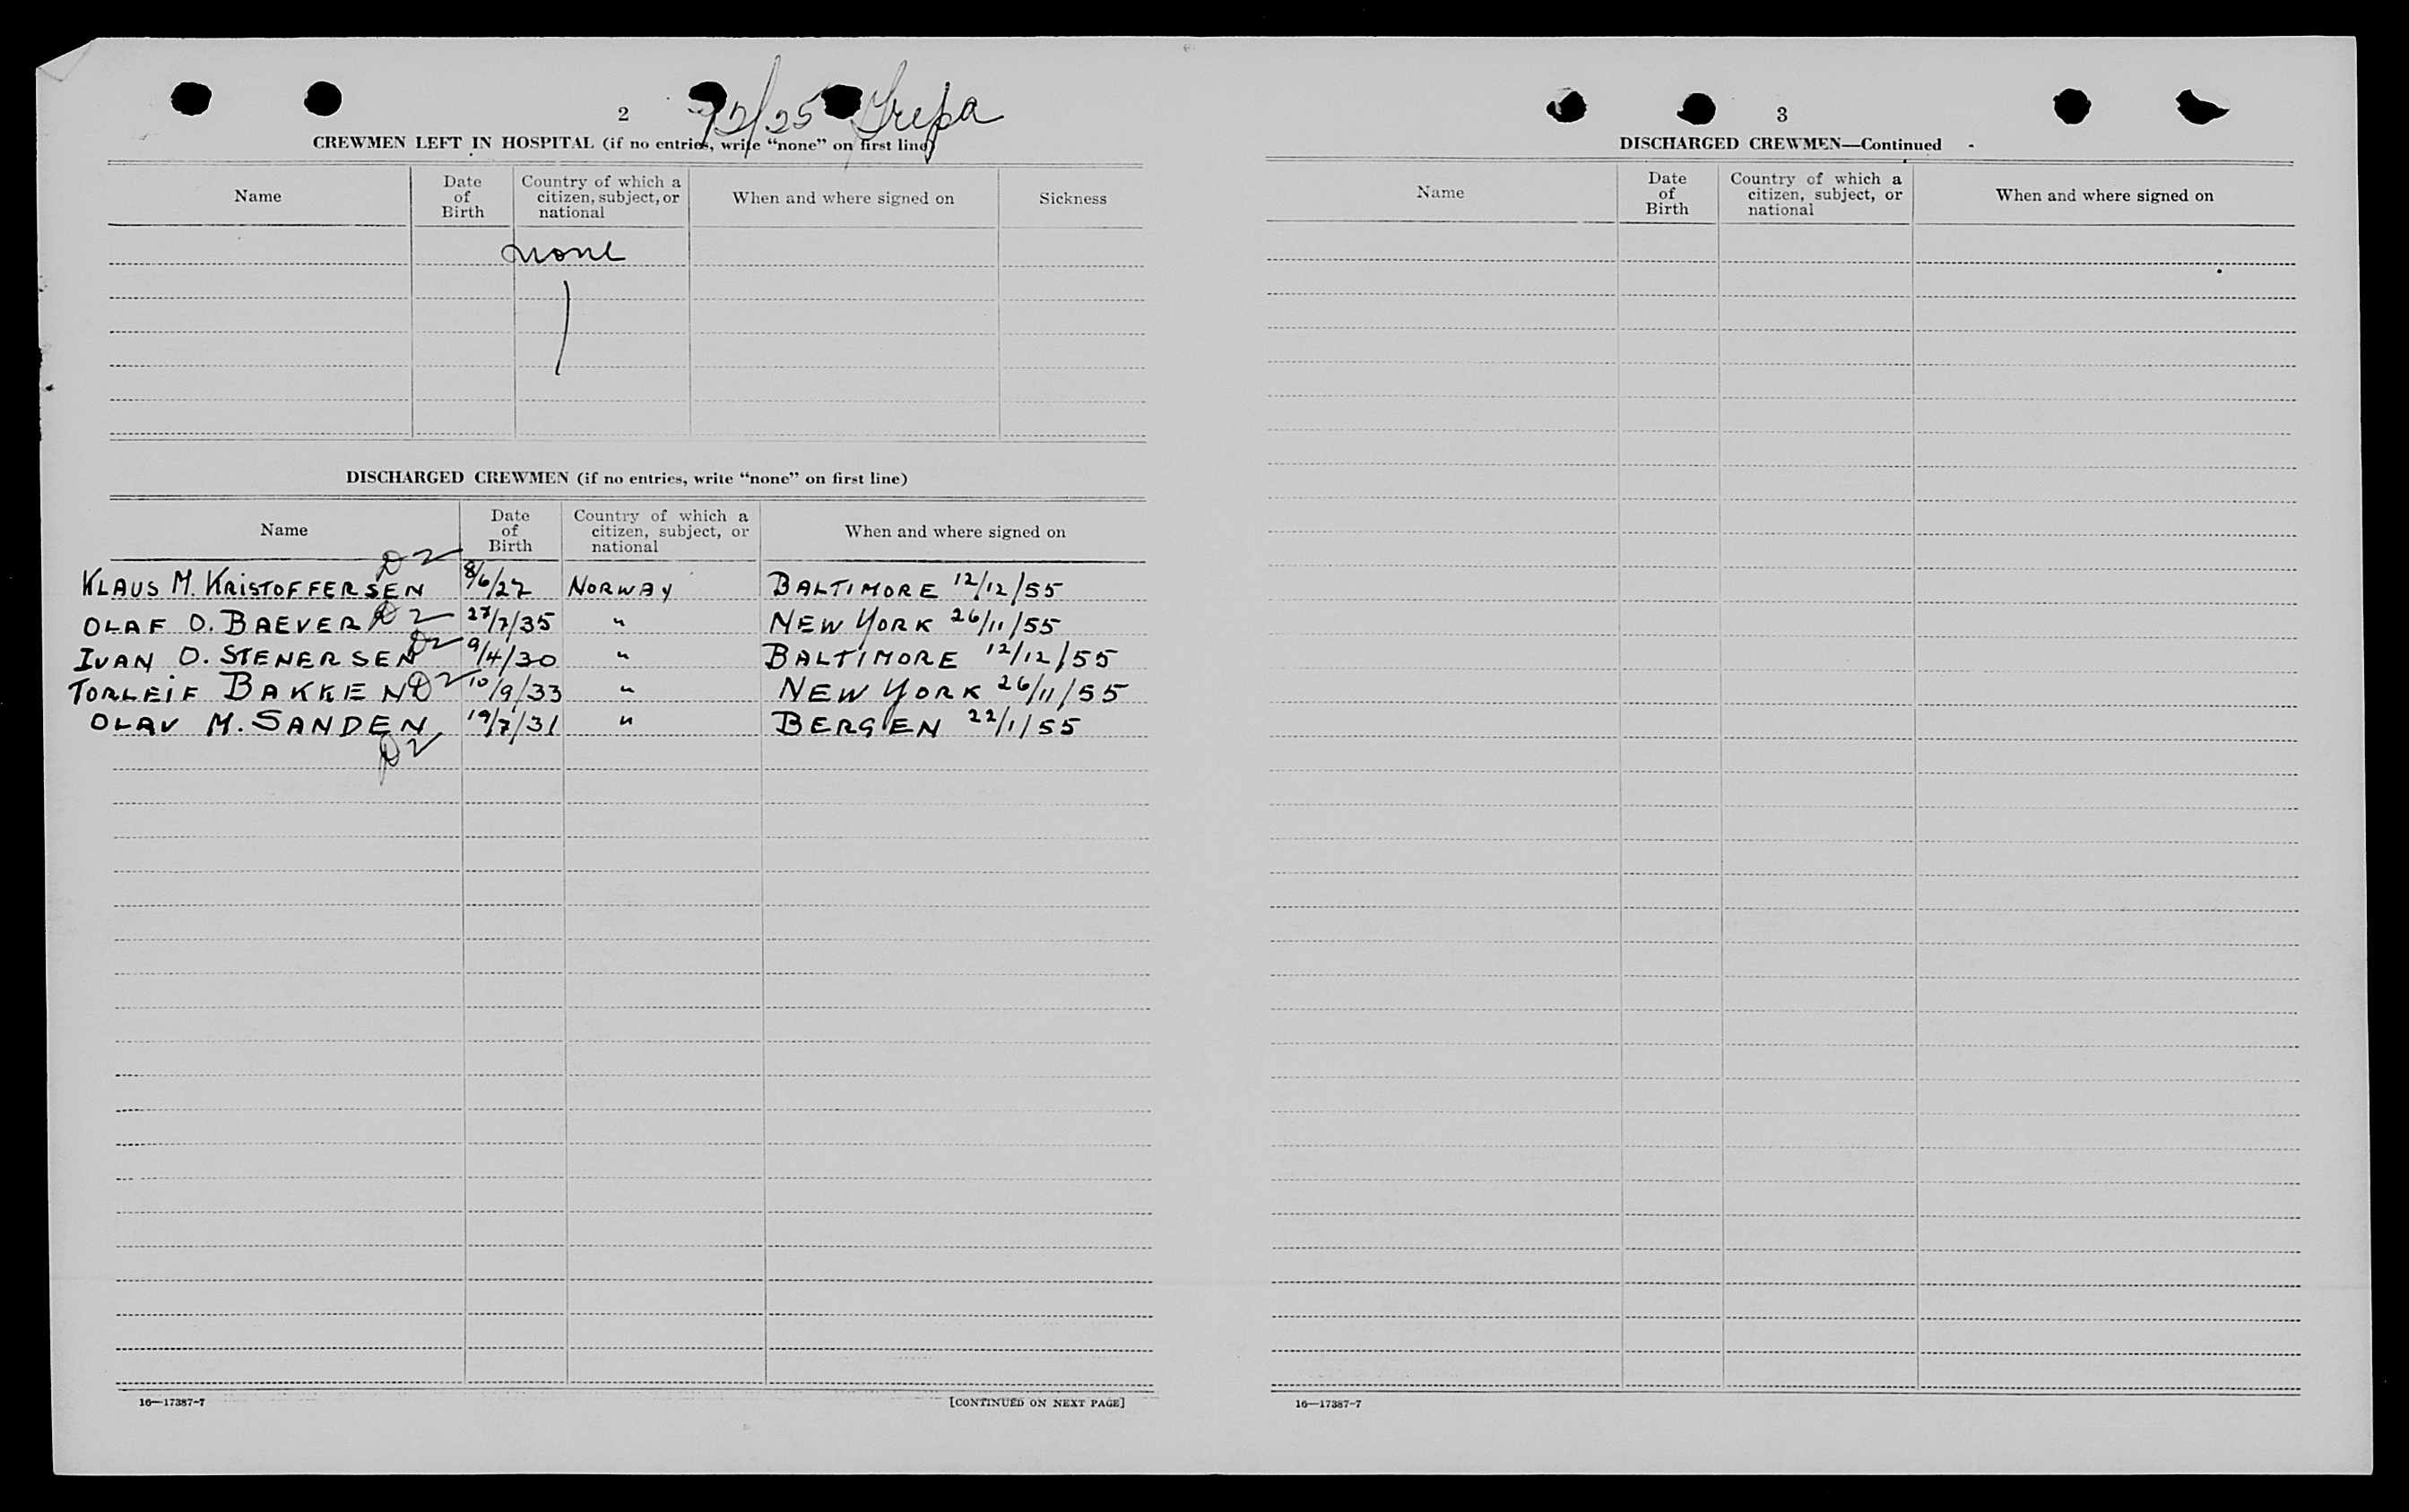 2
CREWMEN LEFT IN HOSPITAL (if no entries, write “none” on first line)
Name Date of Birth Country of which a citizen, subject, or national When and where signed on Sickness
none
DISCHARGED CREWMEN (if no entries, write “none” on first line)
Name Date of Birth Country of which a citizen, subject, or national When and where signed on
KLAUS M. KRISTOFFERSEN D2 8/6/27 NORWAY BALTIMORE 12/12/55
OLAF O. BAEVER D2 /7/35 " NEW YORK 26/11/55
IVAN O. STENERSEN D2 9/4/30 " BALTIMORE 12/12/55
TORLEIF BAKKEN D2 10/9/33 " NEW YORK 26/11/55
OLAV M. SANDEN D2 19/7/31 " BERGEN 22/1/55
16—17387-7 [CONTINUED ON NEXT PAGE]
3
DISCHARGED CREWMEN—Continued
Name Date of Birth Country of which a citizen, subject, or national When and where signed on
16—17387-7